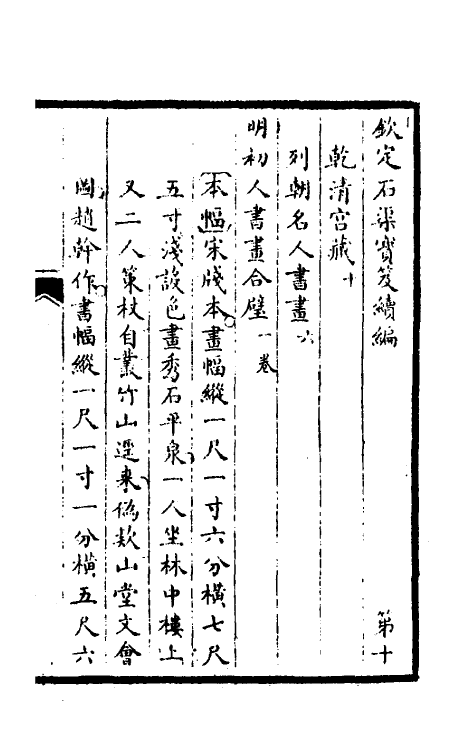 欽定石渠寳笈續編 第十
乾清宫藏十
列朝名人書畫六
明初人書畫合璧一卷
本幅宋牋本畫幅縱一尺一寸六分橫七尺
五寸淺設色畫秀石平泉一人坐林中樓上
又二人策杖自叢竹山逕來偽款山堂文會
圖趙幹作書幅縱一尺一寸一分橫五尺六